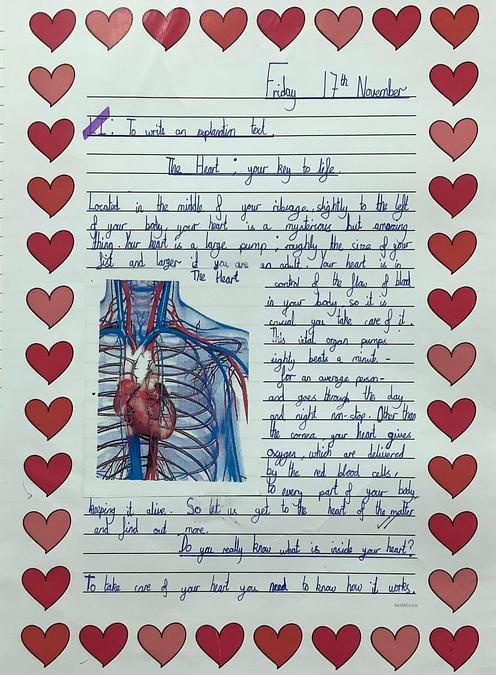 Friday 17th November
LI: To write an explantion text.
The Heart ; your key to life.
Located in the middle of your ribcage, slightly to the left
of your body, your heart is a mysterious but amazing
thing. Your heart is a large pump ; roughly the size of your
fist and larger if you are an adult. Your heart is in
The Heart
control of the flow of blood
in your body so it is
crucial you take care of it.
This vital organ pumps
eighty beats a minute -
for an average person -
and goes through the day
and night non-stop. Other than
the cornea, your heart gives
oxygen, which are delivered
by the red blood cells,
to every part of your body,
keeping it alive. So let us get to the heart of the matter
and find out more.
Do you really know what is inside your heart?
To take care of your heart you need to know how it works.